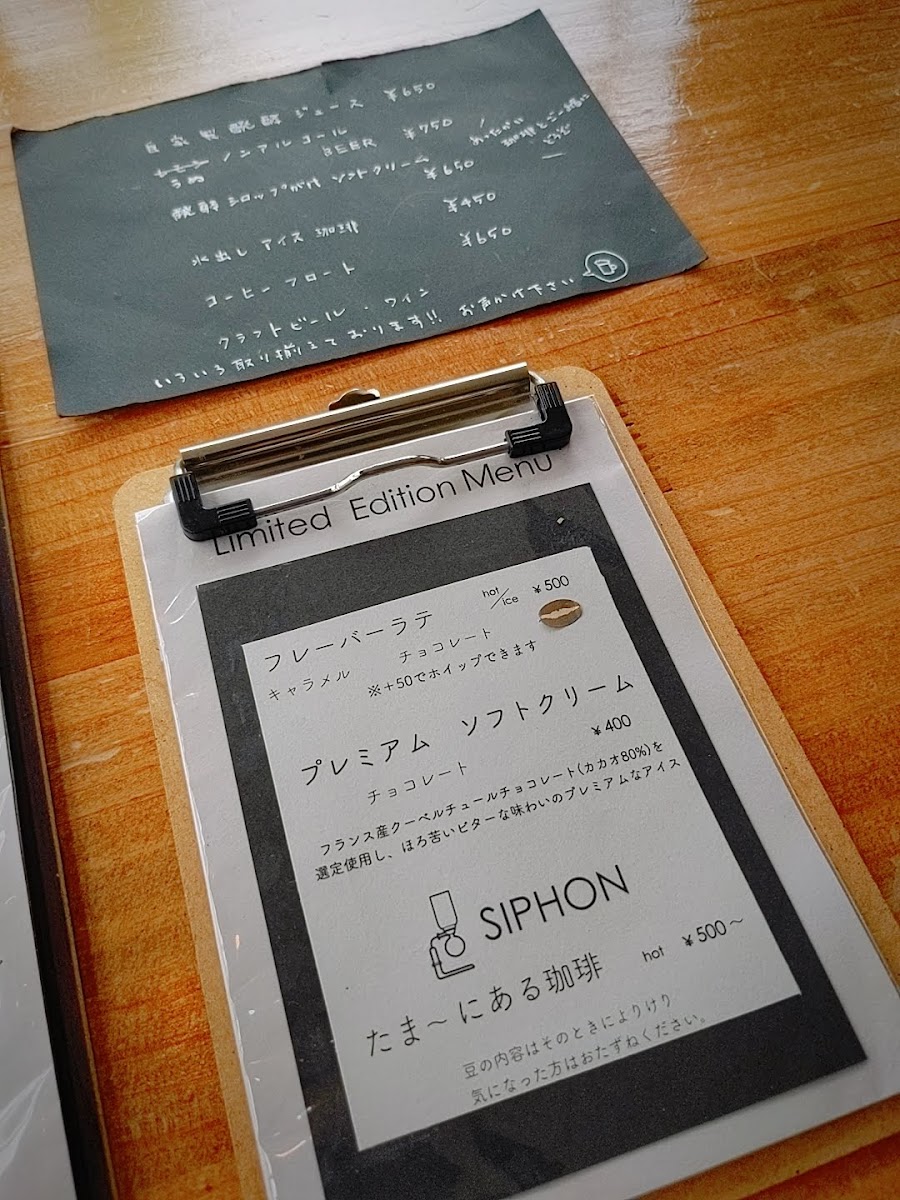 自家製醗酵ジュース ¥650
うめ ノンアルコール BEER ¥750
醗酵シロップがけ ソフトクリーム ¥650
水出しアイス珈琲 ¥450
コーヒーフロート ¥650
クラフトビール・ワイン
いろいろ取り揃えております!! お声かけ下さい
珈琲とご一緒に
どうぞ
Limited Edition Menu
フレーバーラテ hot/ice ¥500
キャラメル チョコレート
※+50でホイップできます
プレミアム ソフトクリーム
チョコレート ¥400
フランス産クーベルチュールチョコレート(カカオ80%)を
選定使用し、ほろ苦いビターな味わいのプレミアムなアイス
SIPHON
たま～にある珈琲 hot ¥500～
豆の内容はそのときによりけり
気になった方はおたずねください。